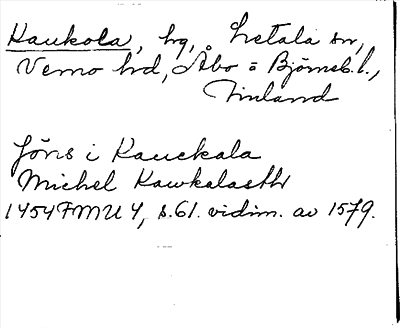 Kaukola, by, Letala sn,
Vemo hd, Åbo = Björneb. l.,
Finland
Jöns i Kauckala
Michel Kawkalasth
1454 FMU 4, s.61. vidim. av 1579.